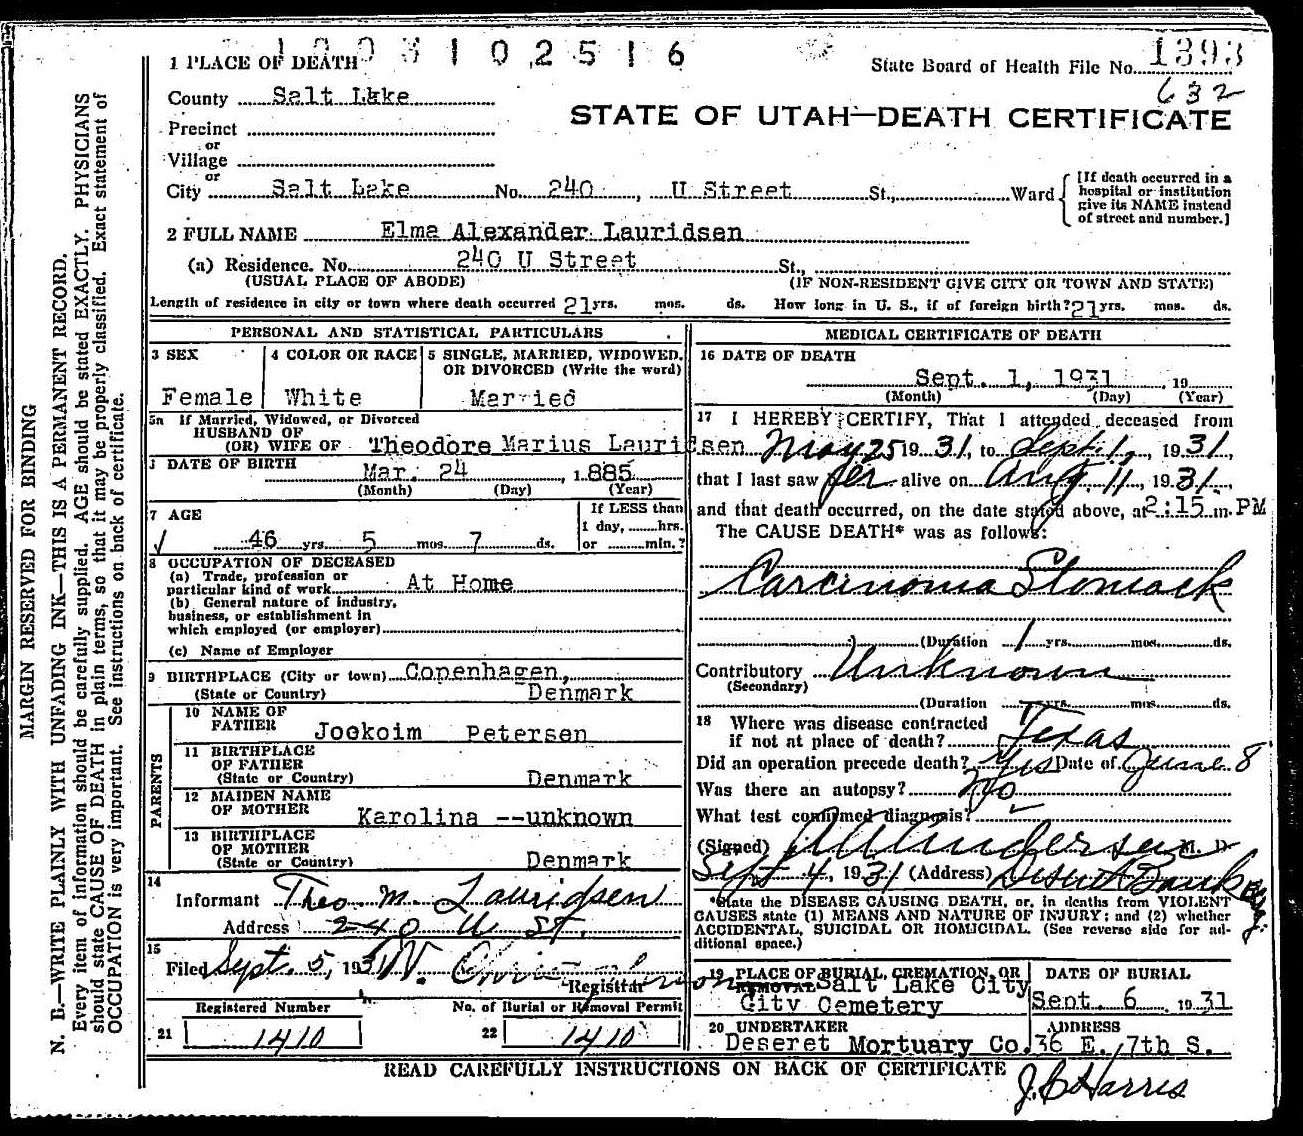 1003102516
State Board of Health File No. 1393
632
1 PLACE OF DEATH
County Salt Lake
STATE OF UTAH—DEATH CERTIFICATE
Precinct
or
Village
or
City Salt Lake No. 240, U Street St., Ward
[If death occurred in a
hospital or institution
give its NAME instead
of street and number.]
2 FULL NAME Elma Alexander Lauridsen
(a) Residence. No. 240 U Street St.,
(USUAL PLACE OF ABODE) (IF NON-RESIDENT GIVE CITY OR TOWN AND STATE)
Length of residence in city or town where death occurred 21 yrs. mos. ds. How long in U. S., if of foreign birth? 21 yrs. mos. ds.
PERSONAL AND STATISTICAL PARTICULARS
3 SEX
Female
4 COLOR OR RACE
White
5 SINGLE, MARRIED, WIDOWED,
OR DIVORCED (Write the word)
Married
5a If Married, Widowed, or Divorced
HUSBAND OF
(OR) WIFE OF Theodore Marius Lauridsen
DATE OF BIRTH
Mar. 24, 1885
(Month) (Day) (Year)
7 AGE
46 yrs. 5 mos. 7 ds.
If LESS than
1 day, hrs.
or min.?
8 OCCUPATION OF DECEASED
(a) Trade, profession or
particular kind of work At Home
(b) General nature of industry,
business, or establishment in
which employed (or employer)
(c) Name of Employer
9 BIRTHPLACE (City or town) Copenhagen,
(State or Country) Denmark
PARENTS
10 NAME OF
FATHER Jockoim Petersen
11 BIRTHPLACE
OF FATHER
(State or Country) Denmark
12 MAIDEN NAME
OF MOTHER Karolina --unknown
13 BIRTHPLACE
OF MOTHER
(State or Country) Denmark
14
Informant Theo. M. Lauridsen
Address 240 U St.
15
Filed Sept. 5, 193 W. Christopherson
Registrar
Registered Number
21 1410
No. of Burial or Removal Permit
22 1410
MEDICAL CERTIFICATE OF DEATH
16 DATE OF DEATH
Sept. 1, 1931, 19
(Month) (Day) (Year)
17 I HEREBY CERTIFY, That I attended deceased from
May 25 1931, to Sept. 1, 1931,
that I last saw her alive on Aug. 11, 1931,
and that death occurred, on the date stated above, at 2:15 m. PM
The CAUSE DEATH* was as follows:
Carcinoma Stomach
(Duration 1 yrs. mos. ds.
Contributory Unknown
(Secondary)
(Duration yrs. mos. ds.
18 Where was disease contracted
if not at place of death? Texas
Did an operation precede death? Yes Date of June 8
Was there an autopsy? No
What test confirmed diagnosis?
(Signed) Andersen M. D
Sept 4, 1931 (Address) Deseret Bank Bldg.
*State the DISEASE CAUSING DEATH, or, in deaths from VIOLENT
CAUSES state (1) MEANS AND NATURE OF INJURY; and (2) whether
ACCIDENTAL, SUICIDAL OR HOMICIDAL. (See reverse side for ad-
ditional space.)
19 PLACE OF BURIAL, CREMATION, OR
REMOVAL Salt Lake City
City Cemetery
DATE OF BURIAL
Sept. 6, 1931
20 UNDERTAKER
Deseret Mortuary Co.
ADDRESS
36 E. 7th S.
READ CAREFULLY INSTRUCTIONS ON BACK OF CERTIFICATE
J. C. Harris
MARGIN RESERVED FOR BINDING
N. B.—WRITE PLAINLY WITH UNFADING INK—THIS IS A PERMANENT RECORD.
Every item of information should be carefully supplied. AGE should be stated EXACTLY. PHYSICIANS
should state CAUSE OF DEATH in plain terms, so that it may be properly classified. Exact statement of
OCCUPATION is very important. See instructions on back of certificate.